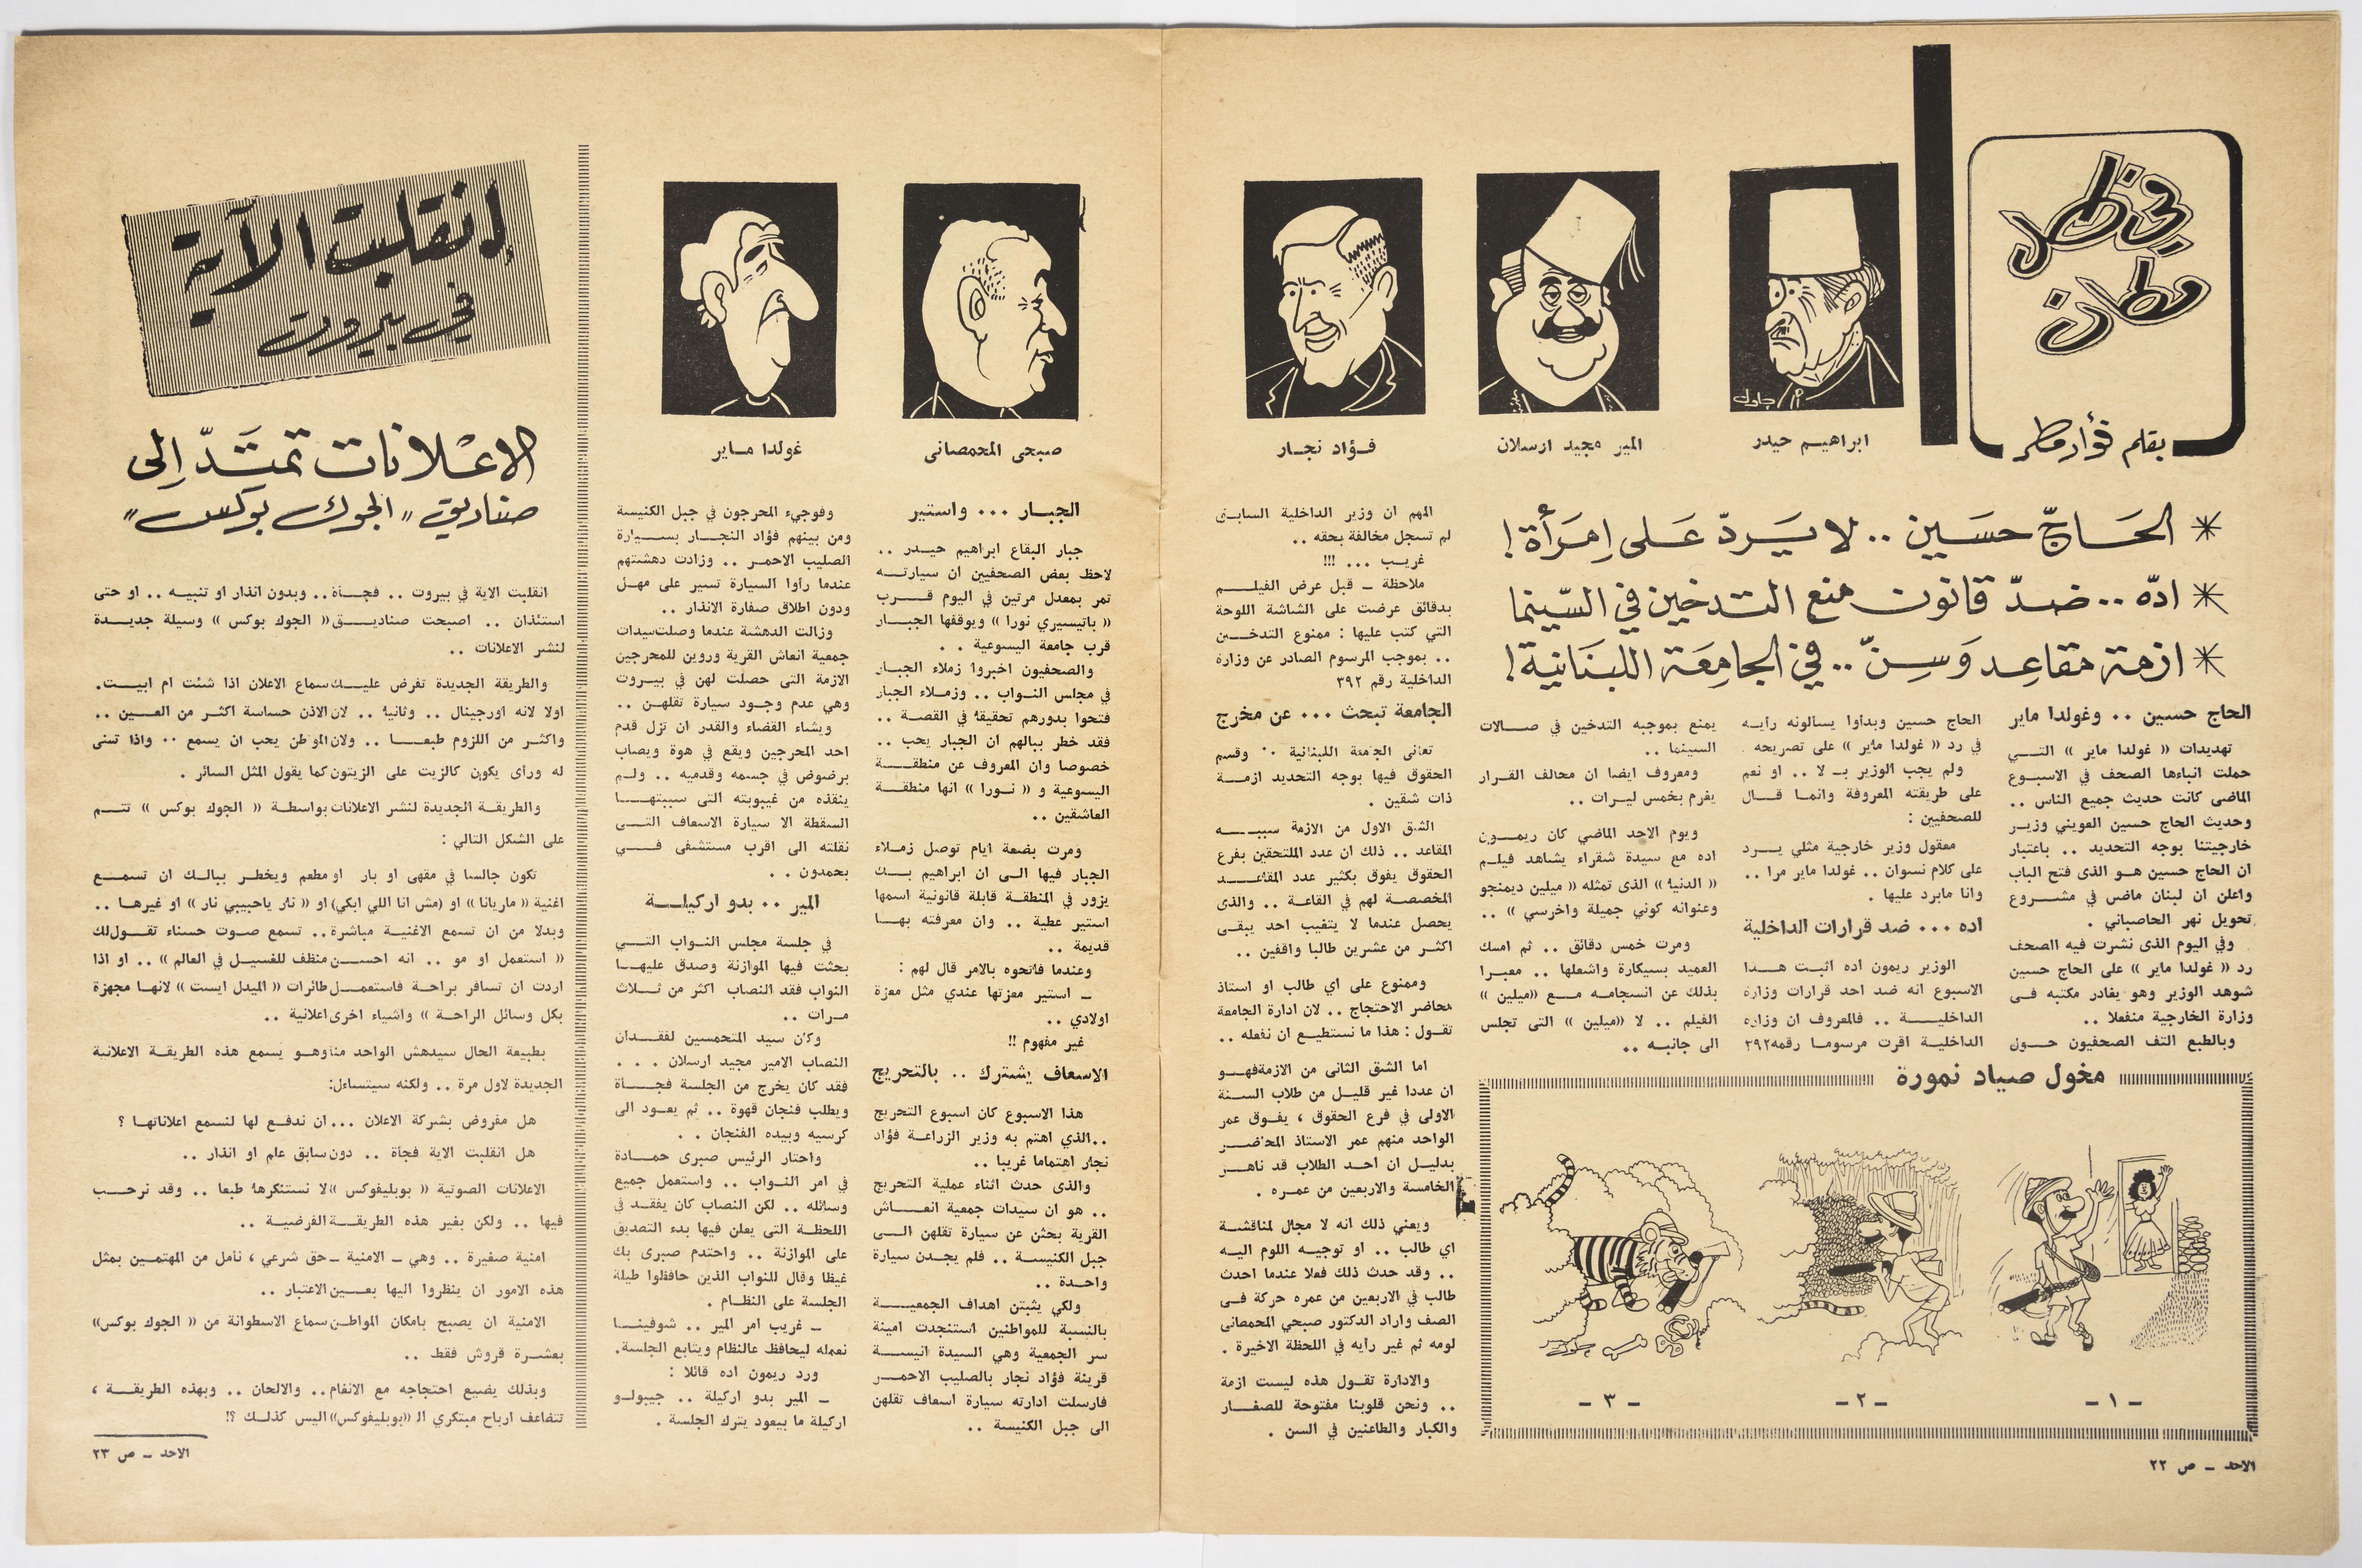 في ظل
مطر
بقلم فؤاد مطر
ابراهيم حيدر
المير مجيد ارسلان
فـؤاد نجـار
* الحَـاجّ حسَـين .. لا يـَردّ عَـلى اِمـَرأة !
* ادّه .. ضدّ قانون منع التدخين في السّينما
* ازمة مقاعِد وَسِنّ .. في الجامِعَة اللبنَانية !
الحاج حسين .. وغولدا ماير
تهديدات « غولدا ماير » التـــي
حملت انباءها الصحف في الاسبــوع
الماضى كانت حديث جميع الناس ..
وحديث الحاج حسين العويني وزيـر
خارجيتنا بوجه التحديد .. باعتبار
ان الحاج حسين هـو الذى فتح الباب
واعلن ان لبنان ماض في مشـــروع
تحويل نهر الحاصباني .
وفي اليوم الذى نشرت فيه الصحف
رد « غولدا ماير » على الحاج حسين
شوهد الوزير وهو يغادر مكتبه فـى
وزارة الخارجية منفعلا ..
وبالطبع التف الصحفيون حـــول
الحاج حسين وبدأوا يسالونه رأيــه
في رد « غولدا ماير » على تصريحه .
ولم يجب الوزير بـ لا .. او نعم
على طريقته المعروفة وانمـا قــال
للصحفيين :
معقول وزير خارجية مثلي يـــرد
على كلام نسوان .. غولدا ماير مرا ..
وانا مابرد عليها .
اده ... ضد قرارات الداخلية
الوزير ريمون اده اثبـت هـــذا
الاسبوع انه ضد احد قرارات وزارة
الداخليـــة .. فالمعروف ان وزارة
الداخليـة اقرت مرسومـا رقمه ٣٩٢
يمنع بموجبه التدخين في صــالات
السينما ..
ومعروف ايضا ان مخالف القـرار
يغرم بخمس ليـرات ..
ويوم الاحد الماضي كان ريمــون
اده مع سيدة شقراء يشاهد فيلـم
« الدنيا » الذى تمثله « ميلين ديمنجو
وعنوانه كوني جميلة واخرسي » ..
ومرت خمس دقائق .. ثم امسك
العميد بسيكارة واشعلها .. معبـرا
بذلك عن انسجامـه مـــع «ميلين »
الفيلم .. لا «ميلين » التى تجلس
الى جانبـه ..
المهم ان وزير الداخلية السابـق
لم تسجل مخالفة بحقه ..
غريـب ... !!!
ملاحظة ـ قبل عرض الفيلــــم
بدقائق عرضت على الشاشة اللوحة
التي كتب عليها : ممنوع التدخــين
.. بموجب المرسوم الصادر عن وزارة
الداخلية رقم ٣٩٢
الجامعة تبحث ... عن مخرج
تعانى الجامعة اللبنانية .. وقسم
الحقوق فيها بوجه التحديد ازمــة
ذات شقين .
الشق الاول من الازمة سببــــه
المقاعد .. ذلك ان عدد الملتحقين بفرع
الحقوق يفوق بكثير عدد المقاعــــد
المخصصـة لهم في القاعـة .. والذى
يحصل عندما لا يتغيب احد يبقـى
اكثـر من عشرين طالبا واقفين ..
وممنوع على اي طالب او استاذ
محاضر الاحتجاج .. لان ادارة الجامعة
تقـول : هذا ما نستطيـع ان نفعله ..
اما الشق الثانى من الازمة فهــو
ان عددا غير قليـل من طلاب السـنة
الاولى في فرع الحقوق ، يفـوق عمر
الواحد منهم عمر الاستاذ المحاضـــر
بدليـل ان احـد الطلاب قد ناهــز
الخامسة والاربعين من عمـره .
ويعني ذلك انه لا مجال لمناقشـة
اي طالب .. او توجيـه اللوم اليـه
.. وقد حدث ذلك فعلا عندما احدث
طالب في الاربعين من عمره حركة فـى
الصف واراد الدكتور صبحي المحمصانى
لومه ثم غير رأيه في اللحظة الاخيرة .
والادارة تقـول هذه ليست ازمة
.. ونحن قلوبنا مفتوحة للصغــار
والكبار والطاعنين في السن .
مخول صياد نمورة
ـ ١ ـ
ـ ٢ ـ
ـ ٣ ـ
الاحد ـ ص ٢٢
صبحى المحمصانى
غولدا مـاير
الجبـار ... واستير
جبار البقاع ابراهيم حيـدر ..
لاحظ بعض الصحفيين ان سيارتـــه
تمر بمعدل مرتين في اليوم قـــرب
« باتيسيري نورا » ويوقفها الجبــار
قرب جامعة اليسوعية . .
والصحفيون اخبروا زملاء الجبـار
في مجلس النـواب .. وزمـلاء الجبار
فتحوا بدورهم تحقيقا في القصـة ..
فقد خطر ببالهم ان الجبار يحب ..
خصوصا وان المعروف عن منطقـــة
اليسوعية و « نـورا » انها منطقــة
العاشقين ..
ومرت بضعة ايام توصل زمـلاء
الجبار فيها الـى ان ابراهيم بـــك
يزور في المنطقـة قابلة قانونية اسمها
استير عطية .. وان معرفته بهــا
قديمة ..
وعندما فاتحوه بالامر قال لهم :
ـ استير معزتها عندي مثل معزة
اولادي ..
غير مفهوم !!
الاسعاف يشترك .. بالتحريج
هذا الاسبوع كان اسبوع التحريج
..الذي اهتم به وزير الزراعـة فؤاد
نجار اهتماما غريبا ..
والذى حدث اثناء عملية التحريج
.. هو ان سيدات جمعية انعـــاش
القرية بحثن عن سيارة تقلهن الــى
جبل الكنيسـة .. فلم يجـدن سيارة
واحـدة ..
ولكي يثبتن اهداف الجمعيـــة
بالنسبة للمواطنين استنجدت امينة
سر الجمعية وهي السيدة انيســـة
قرينة فؤاد نجار بالصليب الاحمـر
فارسلت ادارته سيارة اسعاف تقلهن
الى جبل الكنيسة ..
وفوجيء المحرجون في جبل الكنيسة
ومن بينهم فؤاد النجـار بســيارة
الصليب الاحمـر .. وزادت دهشتهم
عندما رأوا السيارة تسير على مهـل
ودون اطلاق صفارة الانذار ..
وزالت الدهشة عندما وصلت سيدات
جمعية انعاش القرية وروين للمحرجين
الازمة التى حصلت لهن في بيـروت
وهي عدم وجـود سيارة تقلهـن ..
ويشاء القضاء والقدر ان تزل قدم
احد المحرجين ويقع في هوة ويصاب
برضوض في جسمه وقدميه .. ولـم
ينقذه من غيبوبته التى سببتهــا
السقطة الا سيارة الاسعاف التـــى
نقلته الى اقرب مستشفى فـــي
بحمدون . .
المير .. بدو اركيلـــة
في جلسة مجلس النـواب التـــي
بحثت فيها الموازنة وصدق عليهــا
النواب فقد النصاب اكثر من ثــلاث
مـرات ..
وكان سيد المتحمسين لفقـــدان
النصاب الامير مجيد ارسلان . . .
فقد كان يخرج من الجلسة فجــأة
ويطلب فنجان قهوة .. ثم يعـود الى
كرسيه وبيده الفنجان . .
واحتار الرئيس صبرى حمــادة
في امر النـواب .. واستعمل جميع
وسائله .. لكن النصاب كان يفقـد في
اللحظـة التى يعلن فيها بدء التصديق
على الموازنة .. واحتدم صبرى بك
غيظا وقال للنواب الذين حافظوا طيلة
الجلسة على النظـام .
ـ غريب امر المير .. شوفينـــا
نعمله ليحافظ عالنظام ويتابع الجلسة.
ورد ريمون اده قائلا :
ـ المير بدو اركيلة .. جيبولـو
اركيلة ما بيعود يترك الجلسة .
إنقلبت الآية
في بيروت
الاعْـلانات تمتَـدّ اِلى
صناديق « الجوك بوكس »
انقلبت الاية في بيروت .. فجــأة .. وبدون انذار او تنبيـه .. او حتى
استئذان .. اصبحت صناديــق « الجوك بوكس » وسيلة جديــدة
لنشر الاعلانات ..
والطريقة الجديدة تفرض عليــك سماع الاعلان اذا شئت ام ابيـت.
اولا لانه اورجينال .. وثانيا .. لان الاذن حساسة اكثـر من العــين ..
واكثـر من اللزوم طبعــا .. ولان المواطن يحب ان يسمع .. واذا تسنى
له ورأى يكون كالزيت على الزيتون كما يقول المثل السائر .
والطريقـة الجديدة لنشر الاعلانات بواسطـة « الجوك بوكس » تتــم
على الشكل التالي :
تكون جالسا في مقهى او بار او مطعم ويخطـر ببالـك ان تسمــع
اغنية « ماريانا » او (مش انا اللي ابكي) او « نار ياحبيبي نار » او غيرهـا ..
وبدلا من ان تسمع الاغنيـة مباشرة .. تسمع صـوت حسناء تقــول لك
« استعمل او مو .. انه احســن منظف للغسيـل في العالم » .. او اذا
اردت ان تسافر براحـة فاستعمــل طائرات « الميدل ايست » لانهـا مجهزة
بكل وسائل الراحـة » واشياء اخرى اعلانية ..
بطبيعة الحال سيدهش الواحد منا وهـو يسمع هذه الطريقـة الاعلانية
الجديدة لاول مرة .. ولكنه سيتساءل:
هل مفروض بشركة الاعلان ... ان ندفـع لها لنسمع اعلاناتهـا ؟
هل انقلبت الاية فجأة .. دون سابق علم او انذار ..
الاعلانات الصوتية « بوبليفوكس » لا نستنكرها طبعا .. وقد نرحــب
فيها .. ولكن بغير هذه الطريقــة الفرضيـة ..
امنية صغيرة .. وهي ـ الامنية ـ حق شرعي ، نأمل من المهتمـين بمثل
هذه الامور ان ينظروا اليها بعــين الاعتبار ..
الامنية ان يصبح بامكان المواطـن سماع الاسطوانة من « الجوك بوكس»
بعشـرة قروش فقط ..
وبذلك يضيع احتجاجه مع الانغام .. والالحان .. وبهذه الطريقــة ،
تتضاعف ارباح مبتكري الـ «بوبليفوكس» اليس كذلـك ؟!
الاحد ـ ص ٢٣